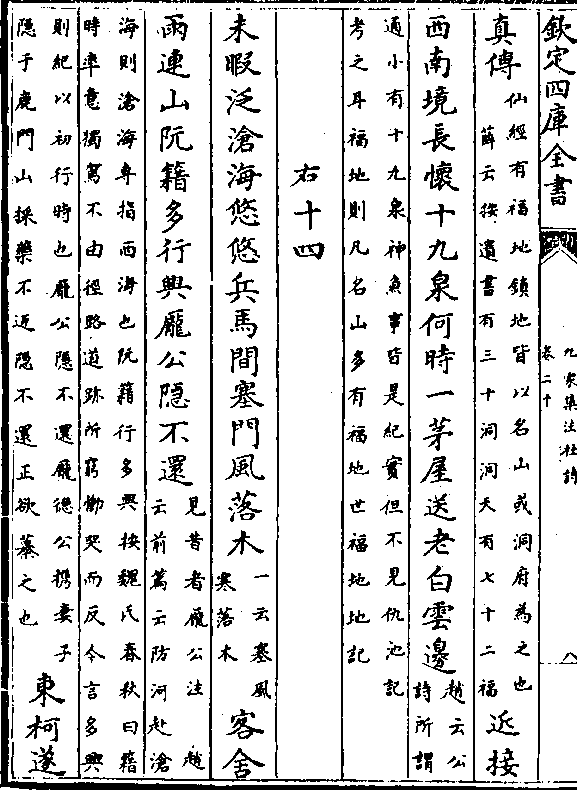 欽定四庫全書
九家集注杜詩
卷二十
八
真傳
仙經有福地鎮地皆以名山或洞府為之也
薛云按遺書有三十洞洞天有七十二福
近接
西南境長懷十九泉何時一茅屋送老白雲邊
趙云公
詩所謂
通小有十九泉神魚事皆是紀實但不見仇池記
考之耳福地則凡名山多有福地世福地地記
右十四
未暇泛滄海悠悠兵馬間塞門風落木
一云塞風
寒落木
客舍
雨連山阮籍多行興龐公隱不還
見昔者龐公注 趙
云前篇云防河赴滄
海則滄海專指西海也阮籍行多興按魏氏春秋曰籍
時率意獨駕不由徑路道跡所窮慟哭而反今言多興
則紀以初行時也龐公隱不還龐德公攜妻子
隱于鹿門山採藥不返隱不還正欲慕之也
東柯遂